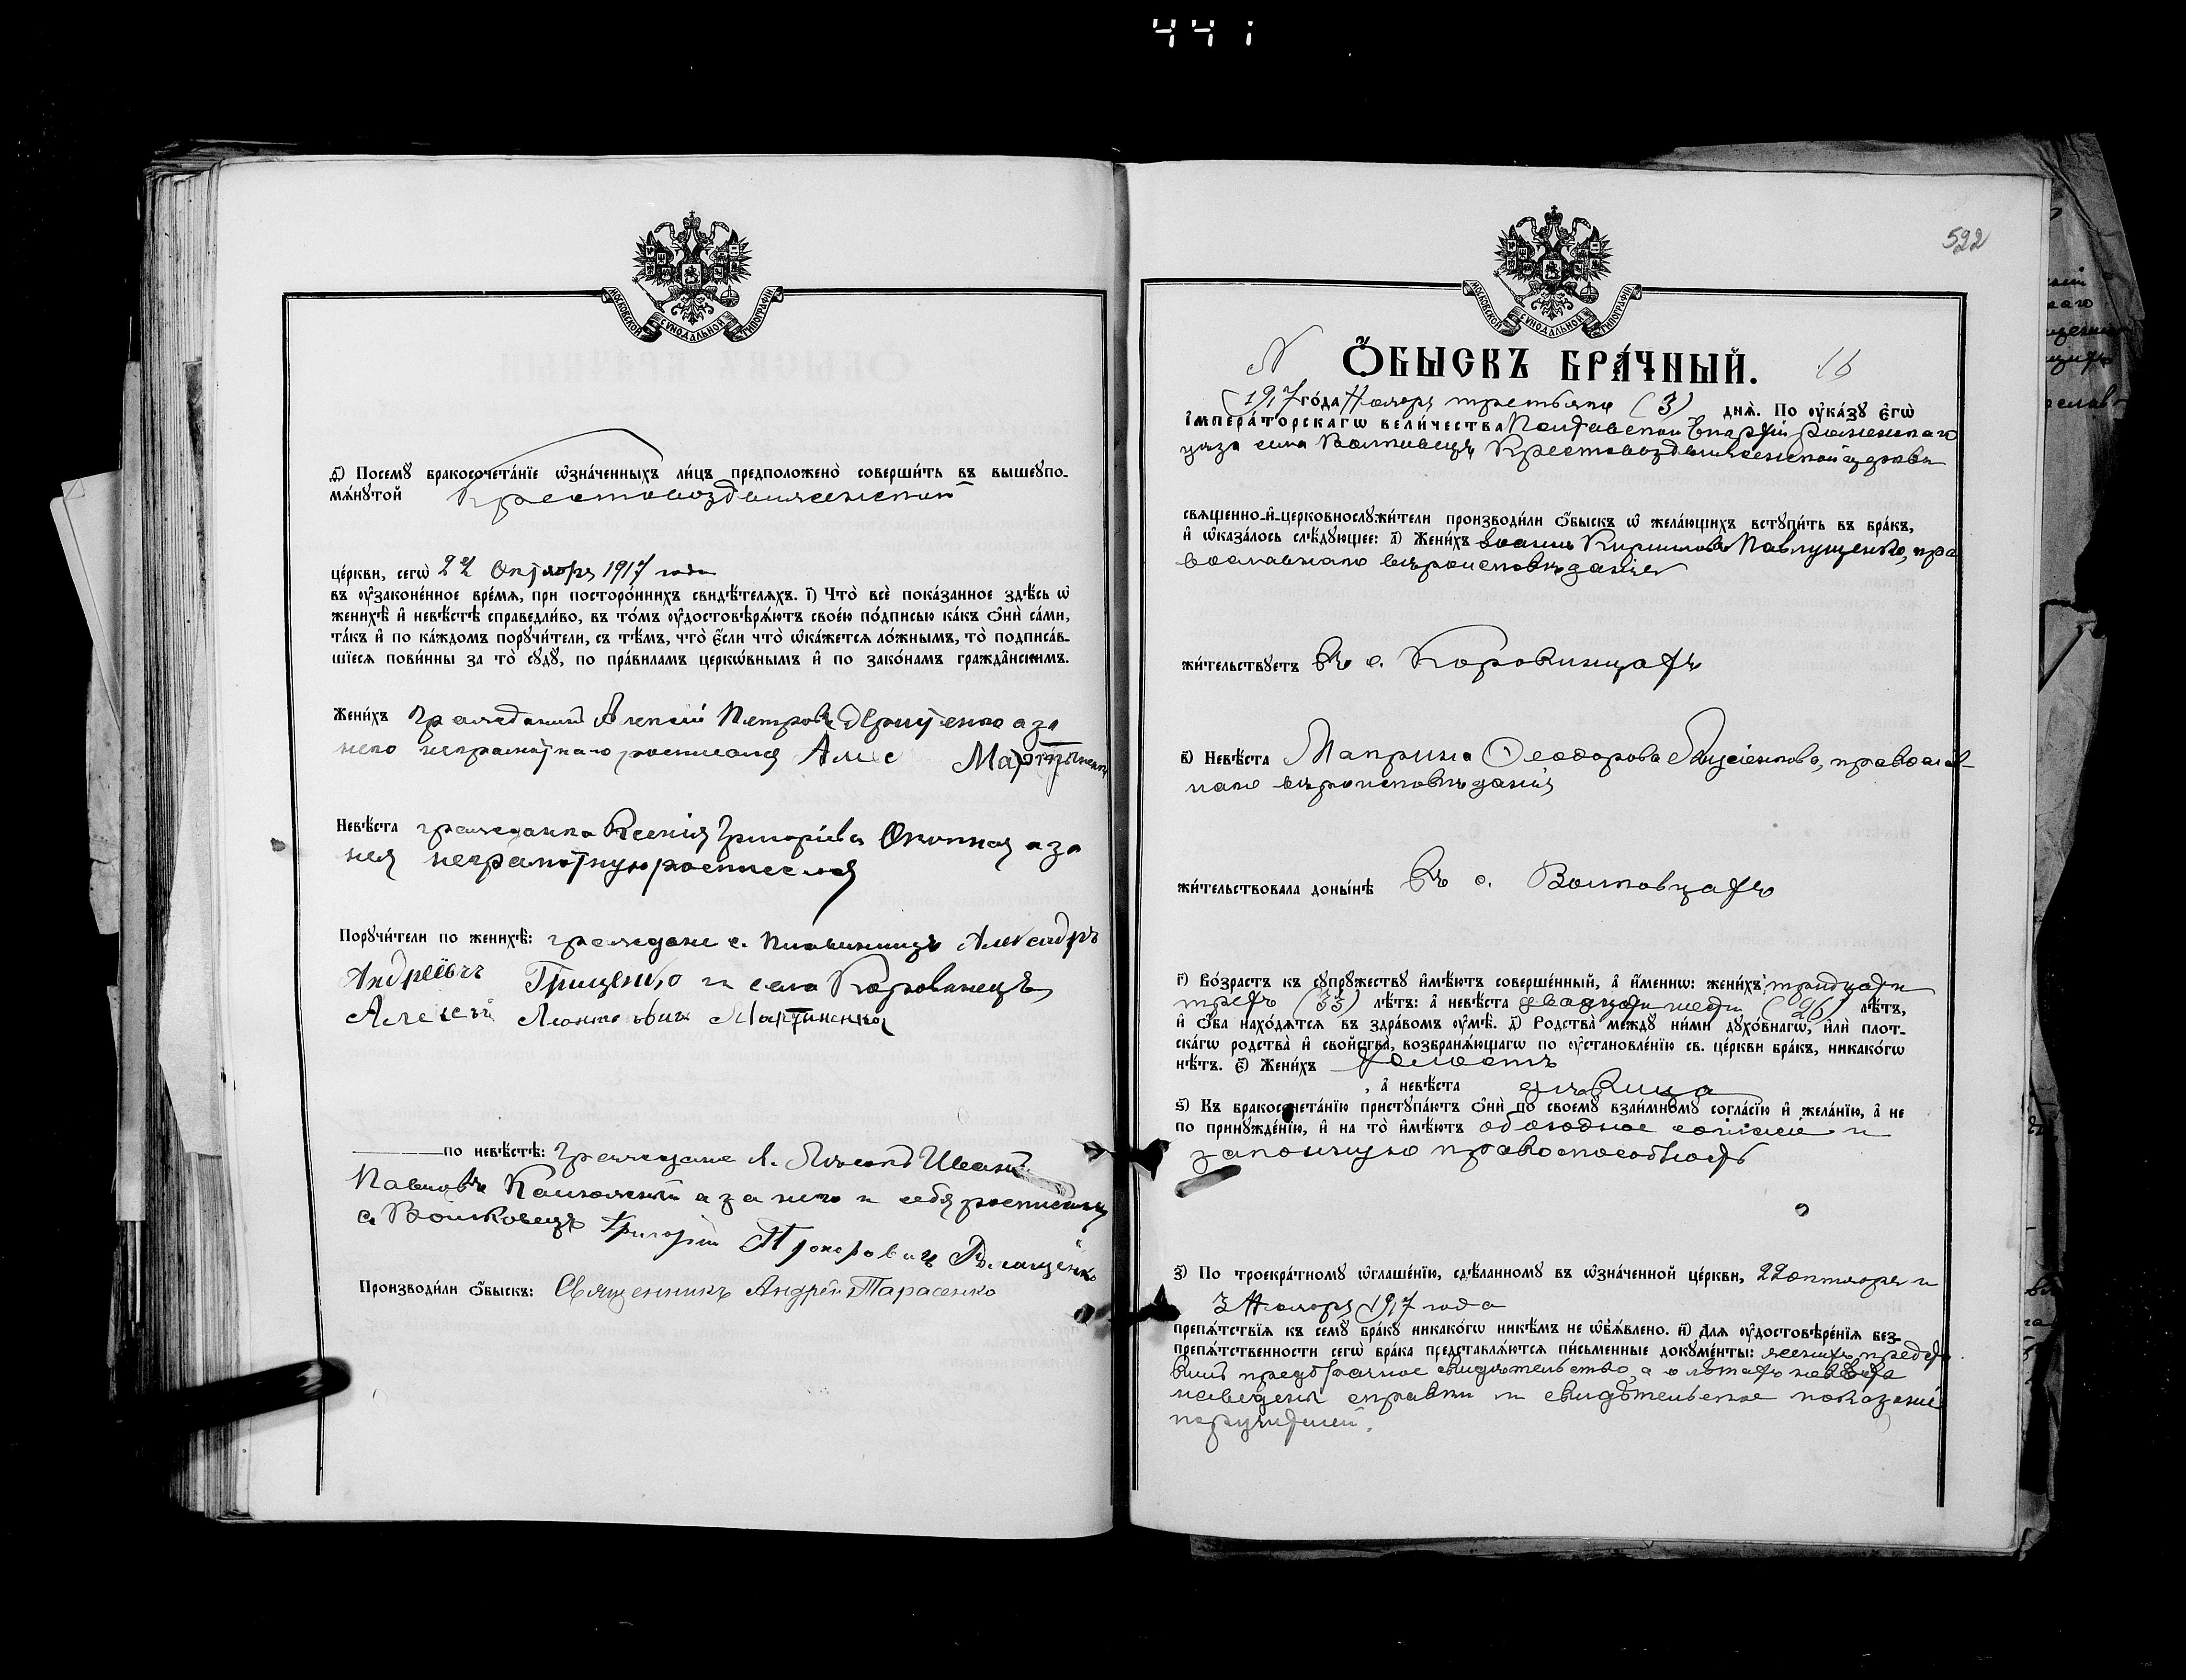 441
МОСКОВСКОЙ СѴНОДАЛЬНОЙ ТИПОГРАФІИ
ѳ҃) Посемꙋ бракосочета́нїе ѡ҆зна́ченныхъ ли́цъ предположено̀ соверши́ть въ вышеꙋпо-
мѧ́нꙋтой Крестовоздвиженской
це́ркви, сегѡ̀ 22 Октября 1917 года
въ ᲂу҆зако́ненное вре́мѧ, при посторо́ннихъ свидѣ́телѧхъ. і҃) Что̀ всѐ пока́занное здѣ́сь ѡ҆
женихѣ̀ и҆ невѣ́стѣ справедли́во, въ то́мъ ᲂу҆достовѣрѧ́ютъ свое́ю по́дписью ка́къ ѻ҆нѝ са́ми,
та́къ и҆ по ка́ждомъ порꙋчи́тели, съ тѣ́мъ, что̀ є҆́сли что̀ ѡ҆ка́жетсѧ ло́жнымъ, то̀ подписа́в-
шїесѧ пови́нны за то̀ сꙋдꙋ̀, по пра́виламъ церкѡ́внымъ и҆ по зако́намъ гражда̑нскимъ.
Жени́хъ гражданинъ Алексій Петровъ а за
него неграмотнаго росписался Алес Мартыненко
Невѣ́ста гражданка Ксенія Григоріева Окопная а за
нея неграмотную росписался
Порꙋчи́тели по женихѣ̀: граждане с. Александръ
Андреевъ Грищенко и села Коровинецъ
Алексей Леонтьевич Мартиненко
по невѣ́стѣ: граждане Иванъ
Павловъ а за него и себя росписался
с. Волковецъ Григорій Прохоровичъ
Производи́ли ѻ҆́быскъ: Священникъ Андрей Тарасенко
522
МОСКОВСКОЙ СѴНОДАЛЬНОЙ ТИПОГРАФІИ
N Ѻ҆́БЫСКЪ БРА́ЧНЫЙ. 16
1917 го́да Ноября третьяго (3) днѧ̀. По ᲂу҆ка́зꙋ є҆гѡ̀
і҆мпера́торскагѡ вели́чества Полтавской Епархіи Роменскаго
уезда села Волковецъ Крестовоздвиженской церкви
свѧще́нно-и҆-церковнослꙋжи́тели производи́ли ѻ҆́быскъ ѡ҆ жела́ющихъ встꙋпи́ть въ бра́къ,
и҆ ѡ҆каза́лось слѣ́дꙋющее: а҃) Жени́хъ Іоаннъ Кирилловъ Павлущенко, пра
вославнаго вѣроисповѣданія
жи́тельствꙋетъ въ с. Коровинцахъ
в҃) Невѣ́ста Маприна Ѳеодорова, православ-
наго вѣроисповѣданія
жи́тельствовала доны́нѣ въ с. Волковцахъ
г҃) Во́зрастъ къ сꙋпрꙋ́жествꙋ и҆мѣ́ютъ соверше́нный, а҆ и҆́меннѡ: жени́хъ тридцати
трехъ (33) лѣ́тъ: а҆ невѣ́ста двадцати шести (26) лѣ́тъ,
и҆ ѻ҆́ба нахо́дѧтсѧ въ здра́вомъ ᲂу҆мѣ̀. д҃) Родства̀ междꙋ̀ ни́ми дꙋхо́внагѡ, и҆лѝ плот-
ска́гѡ родства̀ и҆ свойства̀, возбранѧ́ющагѡ по ᲂу҆становле́нїю св. це́ркви бра́къ, никако́гѡ
нѣ́тъ. є҃) Жени́хъ холостъ
, а҆ невѣ́ста дѣвица
ѕ҃) Къ бракосочета́нїю пристꙋпа́ютъ ѻ҆нѝ по своемꙋ̀ взаи́мномꙋ согла́сїю и҆ жела́нїю, а҆ не
по принꙋжде́нїю, и҆ на то̀ и҆мѣ́ютъ обоюдное согласіе и
законную правоспособность
з҃) По троекра́тномꙋ ѡ҆глаше́нїю, сдѣ́ланномꙋ въ ѡ҆зна́ченной це́ркви, 22 октября и
3 Ноября 1917 года
препѧ́тствїѧ къ семꙋ̀ бра́кꙋ никако́гѡ никѣ́мъ не ѡ҆б̾ѧ́влено. и҃) Длѧ ᲂу҆достовѣре́нїѧ без-
препѧ́тственности сегѡ̀ бра́ка представлѧ́ютсѧ пи́сьменные докꙋме́нты: женихъ предста
вилъ предбрачное свидѣтельство, а о лѣтахъ невѣста
наведены справки и свидѣтельское показаніе
поручителей.